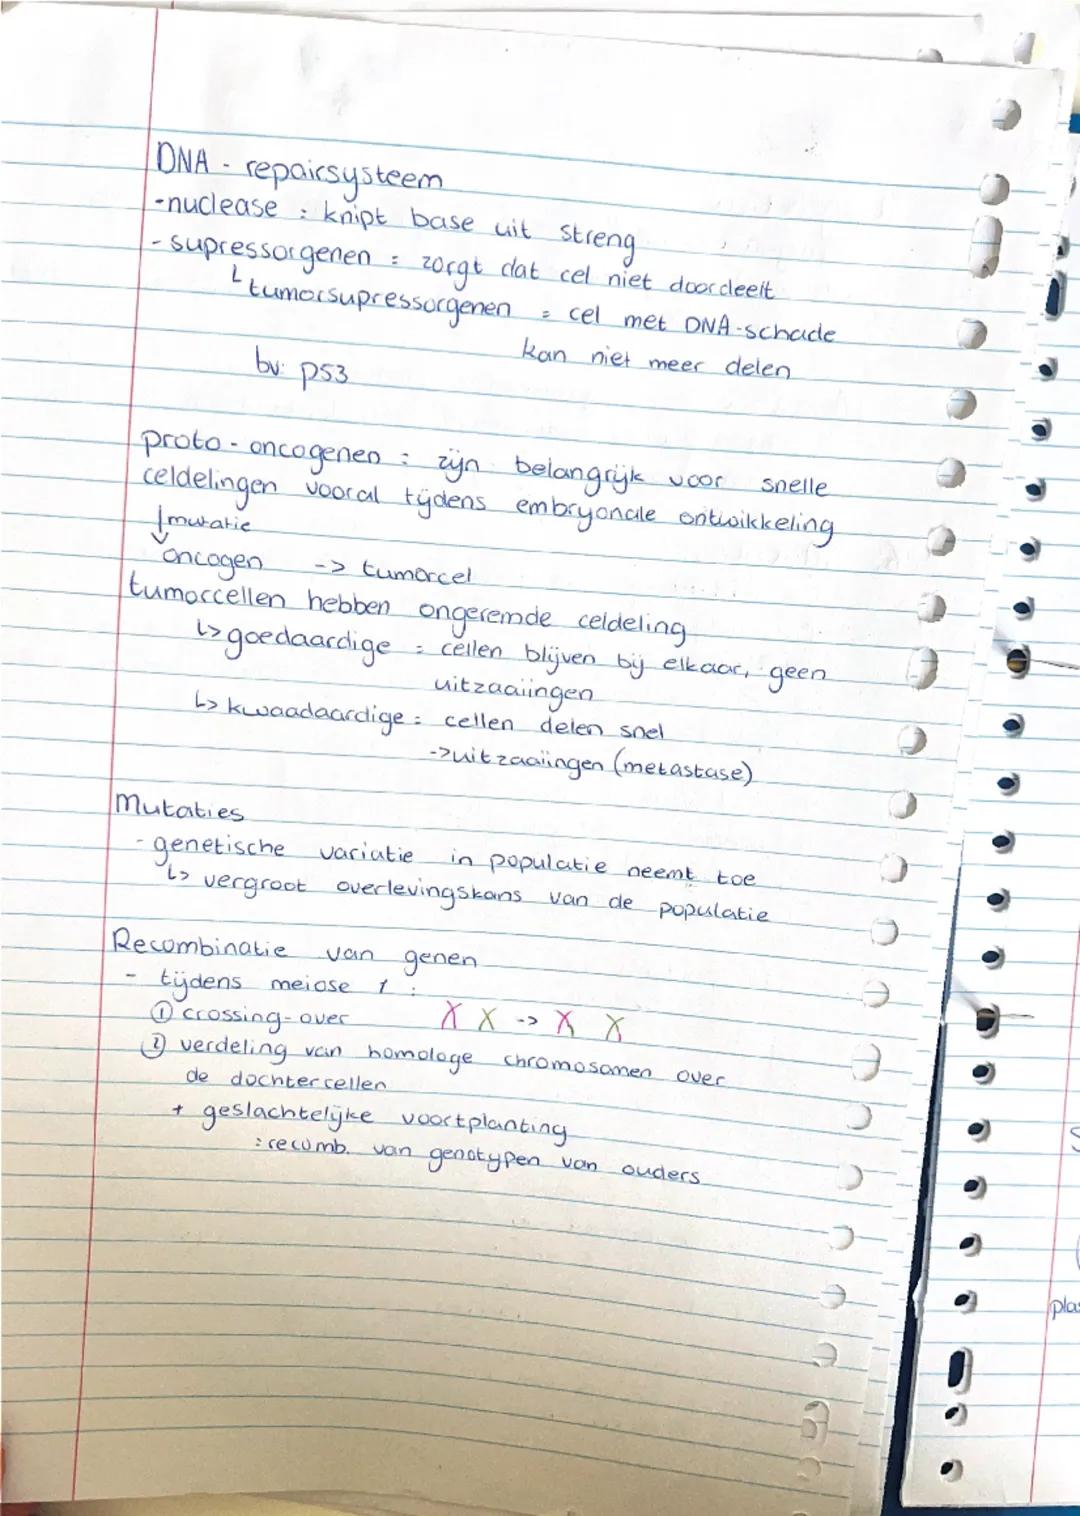 DNA - repairsysteem
-nuclease : knipt base uit streng
- supressorgenen = zorgt dat cel niet doordeelt
↳ tumorsupressorgenen = cel met DNA-schade
kan niet meer delen
bv: p53
proto - oncogenen : zijn belangrijk voor snelle
celdelingen vooral tijdens embryonale ontwikkeling
↓ mutatie
oncogen -> tumorcel
tumorcellen hebben ongeremde celdeling
↳ goedaardige = cellen blijven bij elkaar, geen
uitzaaiingen
↳ kwaadaardige = cellen delen snel
->uitzaaiingen (metastase)
Mutaties
- genetische variatie in populatie neemt toe
↳ vergroot overlevingskans van de populatie
Recombinatie van genen
- tijdens meiose 1 :
① crossing-over X X -> X X
② verdeling van homologe chromosomen over
de dochtercellen
+ geslachtelijke voortplanting
: recomb. van genotypen van ouders
plas